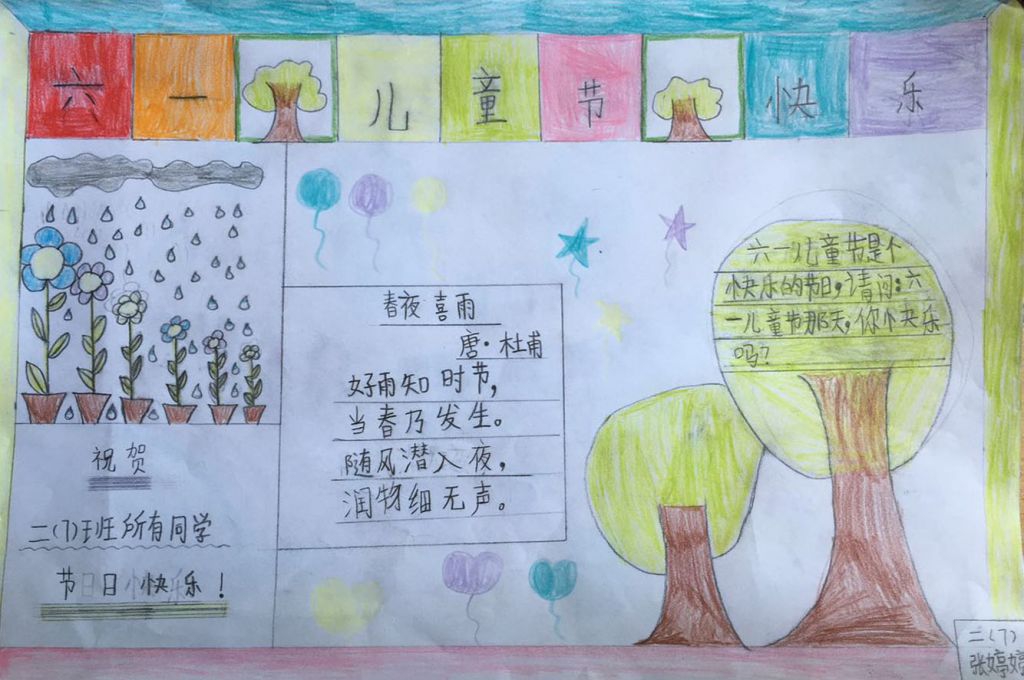 六一儿童节快乐
春夜喜雨
唐·杜甫
好雨知时节,
当春乃发生。
随风潜入夜,
润物细无声。
六一儿童节是个
快乐的节日,请问:六
一儿童节那天,你个快乐
吗?
祝贺
二(7)班所有同学
节日快乐!
二(7)
张婷婷